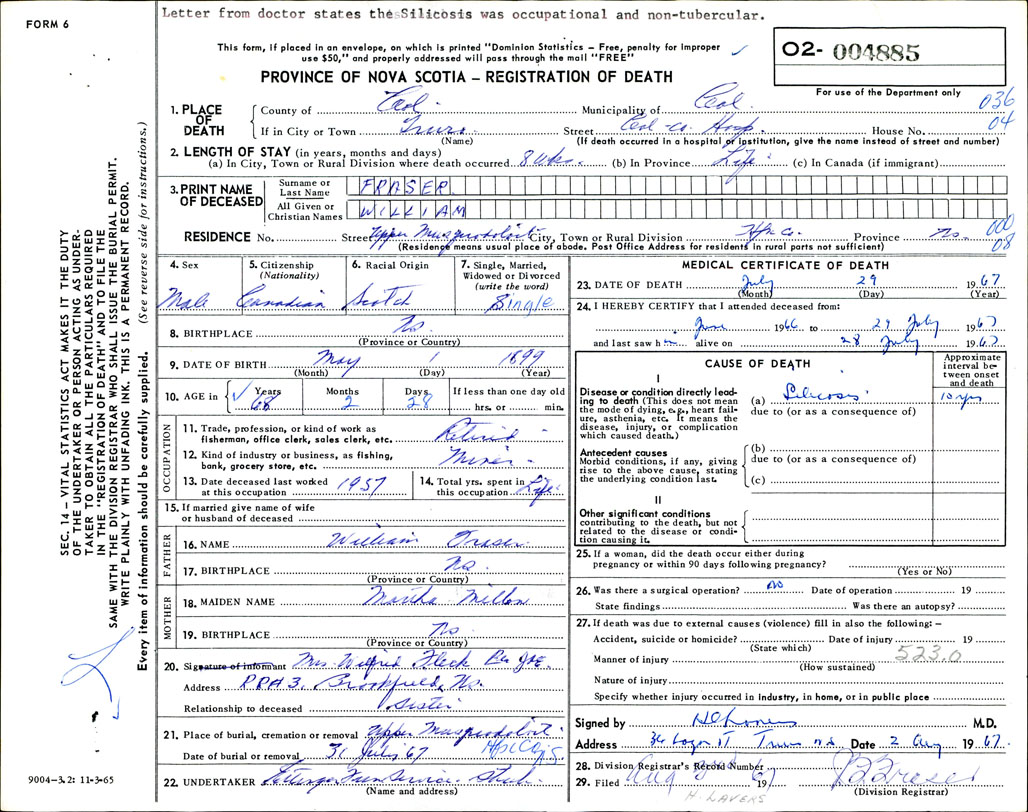 Letter from doctor states the Silicosis was occupational and non-tubercular.
FORM 6
This form, if placed in an envelope, on which is printed "Dominion Statistics – Free, penalty for improper
use $50," and properly addressed will pass through the mail "FREE"
PROVINCE OF NOVA SCOTIA – REGISTRATION OF DEATH
02- 004885
For use of the Department only
036
04
1. PLACE OF DEATH
County of Col. Municipality of Col.
If in City or Town Truro Street Col. Co. Hosp. House No.
(Name) (If death occurred in a hospital or institution, give the name instead of street and number)
2. LENGTH OF STAY (in years, months and days)
(a) In City, Town or Rural Division where death occurred 8 wks. (b) In Province Life (c) In Canada (if immigrant)
3. PRINT NAME OF DECEASED
Surname or Last Name FRASER
All Given or Christian Names WILLIAM
RESIDENCE No. Street Upper Musquodoboit City, Town or Rural Division Hfx Co. Province N.S.
000
08
(Residence means usual place of abode. Post Office Address for residents in rural parts not sufficient)
4. Sex
Male
5. Citizenship (Nationality)
Canadian
6. Racial Origin
Scotch
7. Single, Married, Widowed or Divorced (write the word)
Single
8. BIRTHPLACE N.S.
(Province or Country)
9. DATE OF BIRTH May 1 1899
(Month) (Day) (Year)
10. AGE in Years 68 Months 2 Days 28 If less than one day old hrs. or min.
OCCUPATION
11. Trade, profession, or kind of work as fisherman, office clerk, sales clerk, etc. Retired
12. Kind of industry or business, as fishing, bank, grocery store, etc. Miner
13. Date deceased last worked at this occupation 1957
14. Total yrs. spent in this occupation Life
15. If married give name of wife or husband of deceased
FATHER
16. NAME William Fraser
17. BIRTHPLACE N.S.
(Province or Country)
MOTHER
18. MAIDEN NAME Martha
19. BIRTHPLACE N.S.
(Province or Country)
20. Signature of informant Mrs. Wilfred Fleck
Address RR#3, Brookfield, N.S.
Relationship to deceased Sister
21. Place of burial, cremation or removal Upper Musquodoboit
Date of burial or removal 31 July 67
22. UNDERTAKER
(Name and address)
MEDICAL CERTIFICATE OF DEATH
23. DATE OF DEATH July 29 1967
(Month) (Day) (Year)
24. I HEREBY CERTIFY that I attended deceased from:
June 1966 to 29 July 1967
and last saw him alive on 28 July 1967
CAUSE OF DEATH
Approximate interval between onset and death
I
Disease or condition directly leading to death (This does not mean the mode of dying, e.g., heart failure, asthenia, etc. It means the disease, injury, or complication which caused death.)
(a) Silicosis 10 yrs
due to (or as a consequence of)
Antecedent causes
Morbid conditions, if any, giving rise to the above cause, stating the underlying condition last.
(b)
due to (or as a consequence of)
(c)
II
Other significant conditions
contributing to the death, but not related to the disease or condition causing it.
25. If a woman, did the death occur either during
pregnancy or within 90 days following pregnancy?
(Yes or No)
26. Was there a surgical operation? no Date of operation 19
State findings Was there an autopsy?
27. If death was due to external causes (violence) fill in also the following: –
Accident, suicide or homicide? Date of injury 19
(State which)
523.0
Manner of injury
(How sustained)
Nature of injury
Specify whether injury occurred in industry, in home, or in public place
Signed by M.D.
Address Truro N.S. Date 2 Aug 1967.
28. Division Registrar's Record Number
29. Filed Aug 19
(Division Registrar)
H. LAVERS
SEC. 14 – VITAL STATISTICS ACT MAKES IT THE DUTY
OF THE UNDERTAKER OR PERSON ACTING AS UNDER-
TAKER TO OBTAIN ALL THE PARTICULARS REQUIRED
IN THE "REGISTRATION OF DEATH" AND TO FILE THE
SAME WITH THE DIVISION REGISTRAR WHO SHALL ISSUE THE BURIAL PERMIT.
WRITE PLAINLY WITH UNFADING INK. THIS IS A PERMANENT RECORD.
Every item of information should be carefully supplied. (See reverse side for instructions.)
9004–3.2: 11-3-65